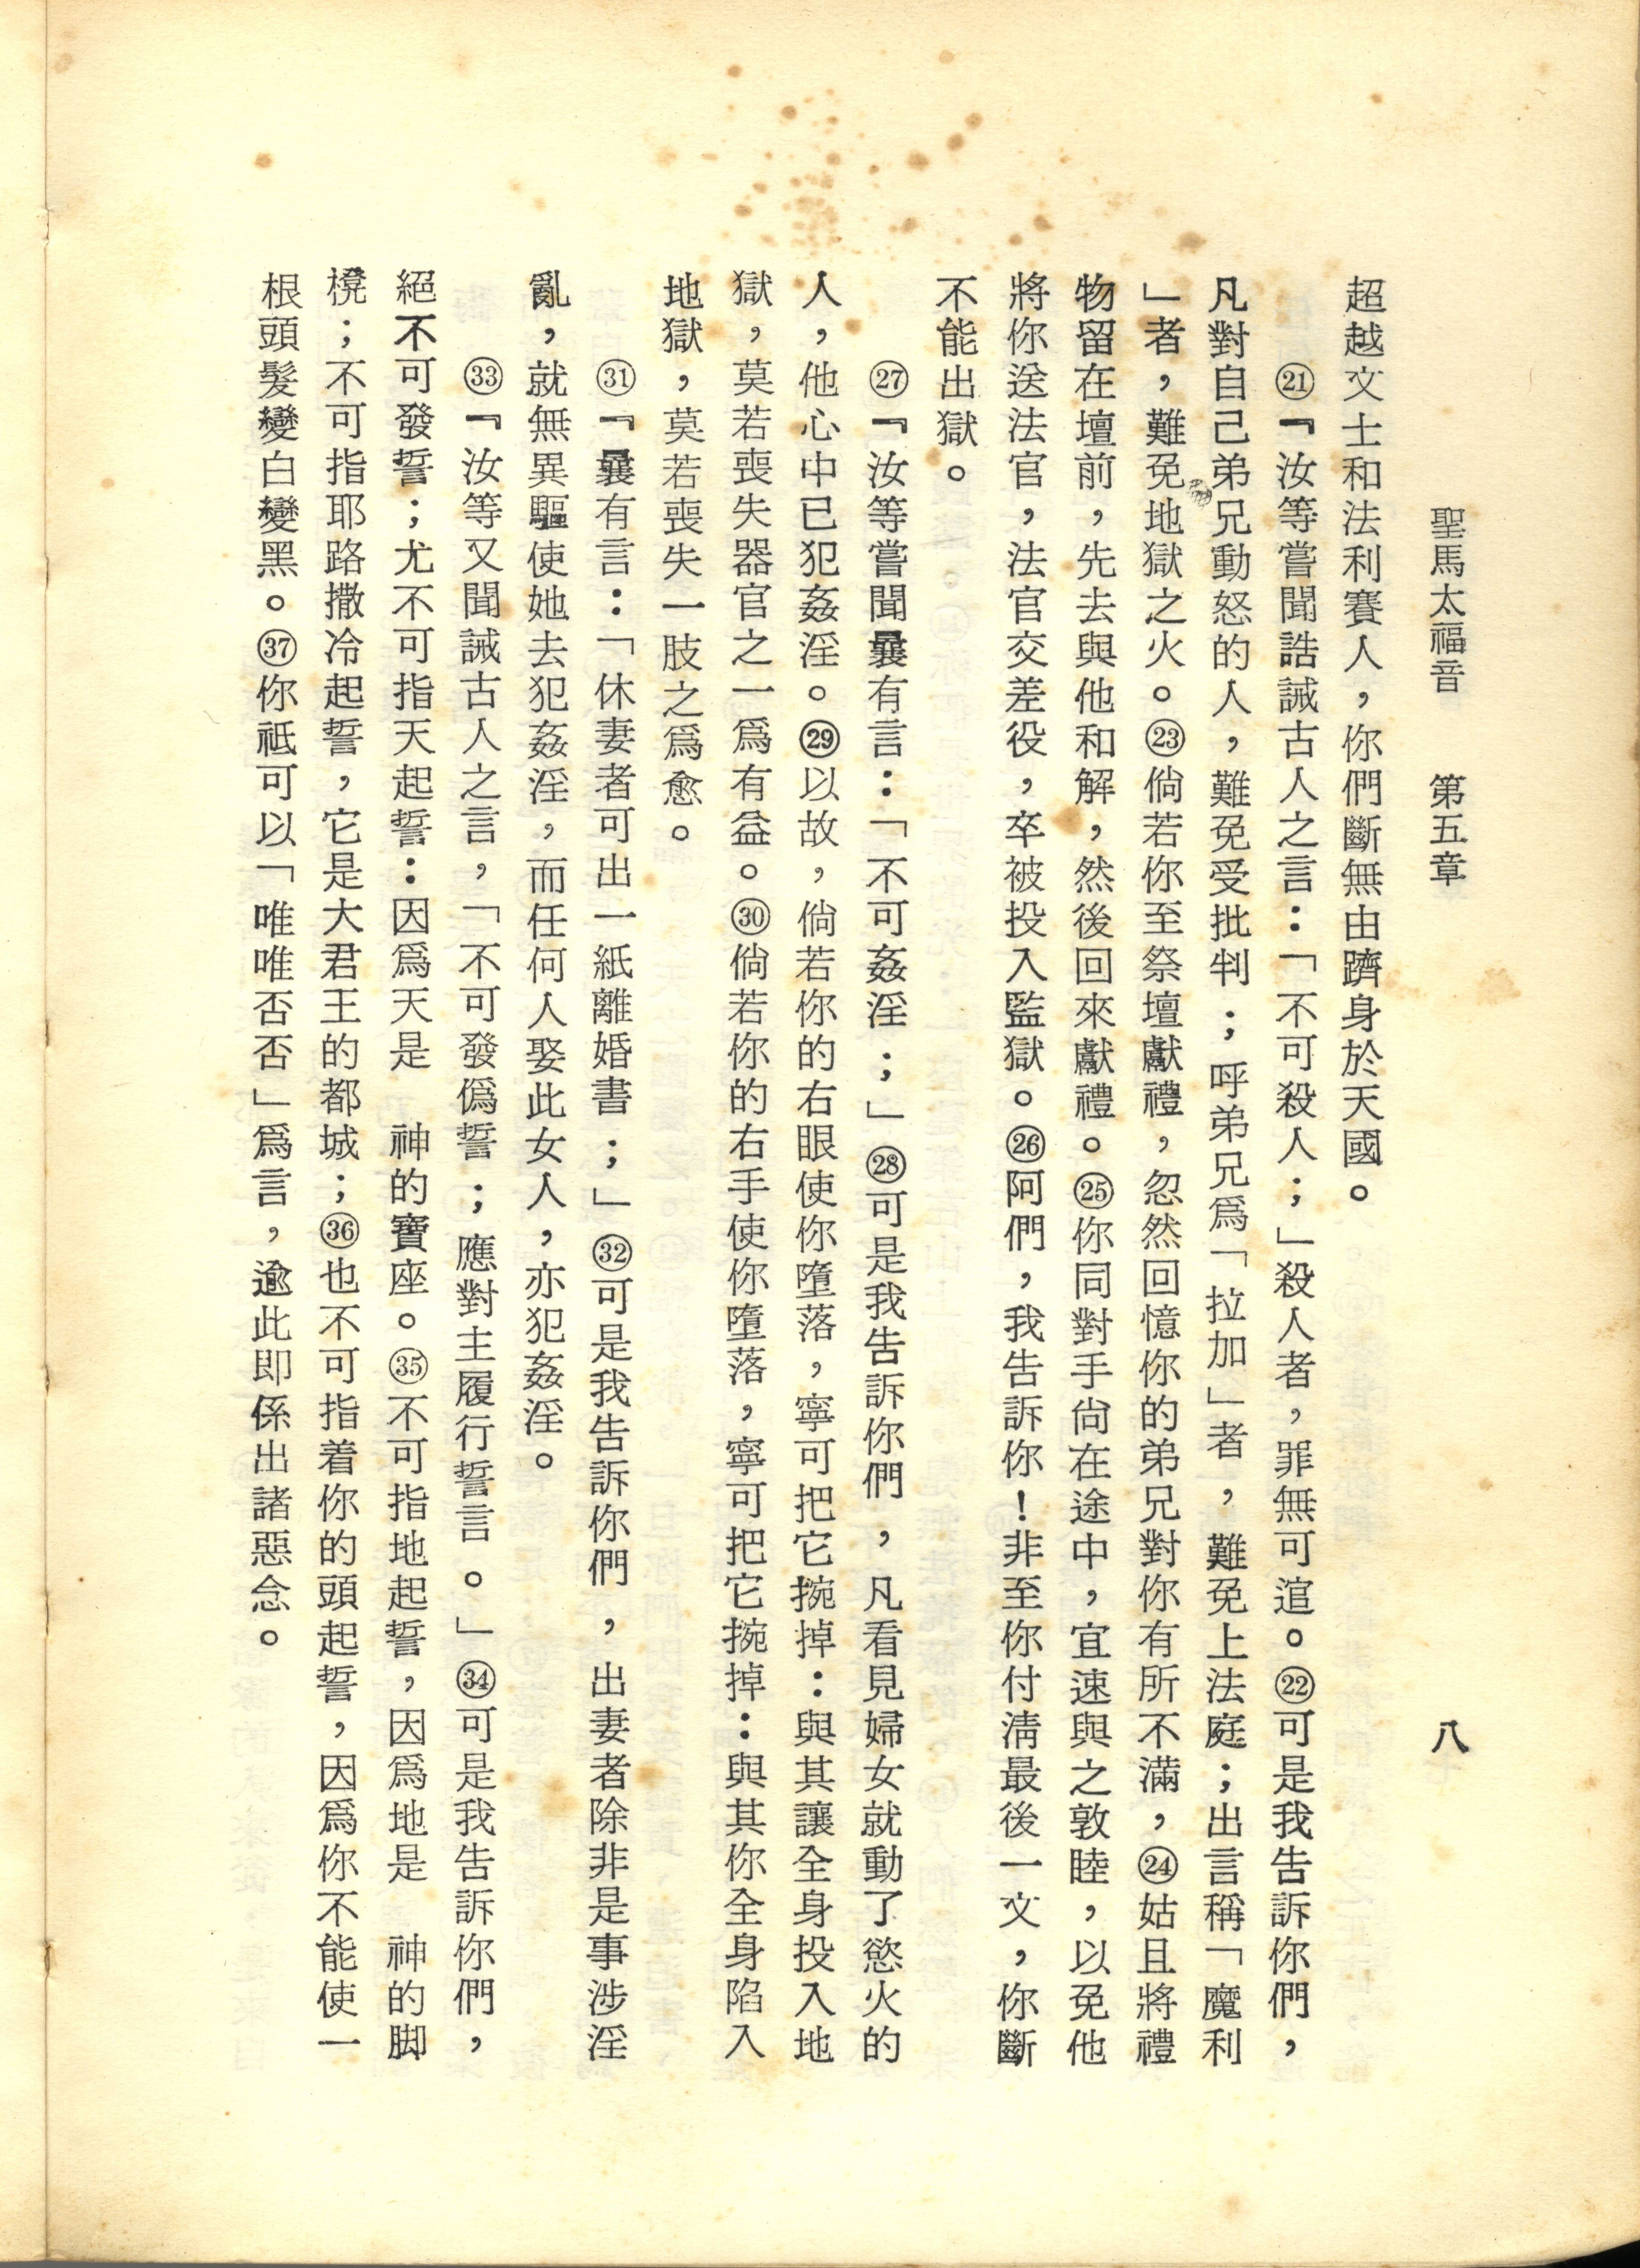 聖馬太福音　第五章　八
超越文士和法利賽人，你們斷無由躋身於天國。
㉑『汝等嘗聞誥誡古人之言：「不可殺人；」殺人者，罪無可逭。㉒可是我告訴你們，
凡對自己弟兄動怒的人，難免受批判；呼弟兄爲「拉加」者，難免上法庭；出言稱「魔利
」者，難免地獄之火。㉓倘若你至祭壇獻禮，忽然回憶你的弟兄對你有所不滿，㉔姑且將禮
物留在壇前，先去與他和解，然後回來獻禮。㉕你同對手尙在途中，宜速與之敦睦，以免他
將你送法官，法官交差役，卒被投入監獄。㉖阿們，我告訴你！非至你付淸最後一文，你斷
不能出獄。
㉗『汝等嘗聞曩有言：「不可姦淫；」㉘可是我告訴你們，凡看見婦女就動了慾火的
人，他心中已犯姦淫。㉙以故，倘若你的右眼使你墮落，寧可把它捥掉：與其讓全身投入地
獄，莫若喪失器官之一爲有益。㉚倘若你的右手使你墮落，寧可把它捥掉：與其你全身陷入
地獄，莫若喪失一肢之爲愈。
㉛『曩有言：「休妻者可出一紙離婚書；」㉜可是我告訴你們，出妻者除非是事涉淫
亂，就無異驅使她去犯姦淫，而任何人娶此女人，亦犯姦淫。
㉝『汝等又聞誡古人之言，「不可發僞誓；應對主履行誓言。」㉞可是我告訴你們，
絕不可發誓；尤不可指天起誓：因爲天是　神的寶座。㉟不可指地起誓，因爲地是　神的脚
櫈；不可指耶路撒冷起誓，它是大君王的都城；㊱也不可指着你的頭起誓，因爲你不能使一
根頭髮變白變黑。㊲你祇可以「唯唯否否」爲言，逾此即係出諸惡念。